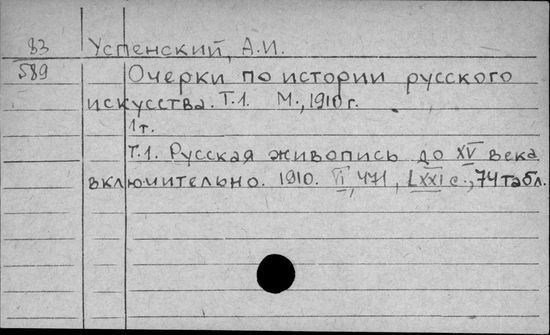 83 Успенский, А.И.
589 Очерки по истории русского
искусства. Т.1. М., 1910 г.
1т.
Т.1. Русская живопись до XV века
включительно. 1910. VI, 471, LXXI с., 74 табл.